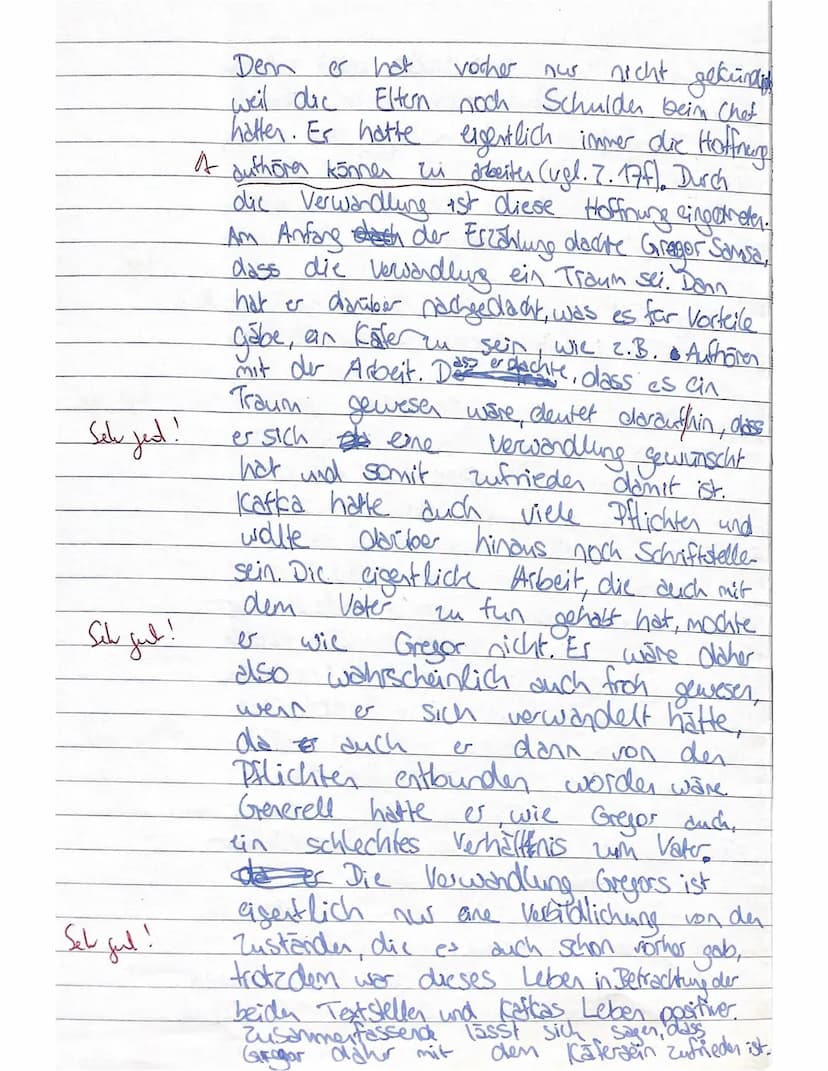 Denn er hat vorher nur nicht gekündigt
weil die Eltern noch Schulden beim Chef
hatten. Er hatte eigentlich immer die Hoffnung
A aufhören können zu arbeiten (vgl. Z. 17f). Durch
die Verwandlung ist diese Hoffnung eingetreten.
Am Anfang der Erzählung dachte Gregor Samsa,
dass die Verwandlung ein Traum sei. Dann
hat er darüber nachgedacht, was es für Vorteile
gäbe, ein Käfer zu sein, wie z.B. Aufhören
mit der Arbeit. Dass er dachte, dass es ein
Traum gewesen wäre, deutet darauf hin, dass
Sehr gut! er sich eine Verwandlung gewünscht
hat und somit zufrieden damit ist.
Kafka hatte auch viele Pflichten und
wollte darüber hinaus noch Schriftstelle-
sein. Die eigentliche Arbeit, die auch mit
dem Vater zu tun gehabt hat, mochte
Sehr gut! er wie Gregor nicht. Er wäre daher
also wahrscheinlich auch froh gewesen,
wenn er sich verwandelt hätte,
da auch er dann von den
Pflichten entbunden worden wäre.
Generell hatte er, wie Gregor auch,
ein schlechtes Verhältnis zum Vater.
Die Verwandlung Gregors ist
eigentlich nur eine Verbildlichung von den
Sehr gut! Zuständen, die es auch schon vorher gab,
trotzdem war dieses Leben in Betrachtung der
beiden Textstellen und Kafkas Leben positiver.
Zusammenfassend lässt sich sagen, dass
Gregor daher mit dem Käfersein zufrieden ist.